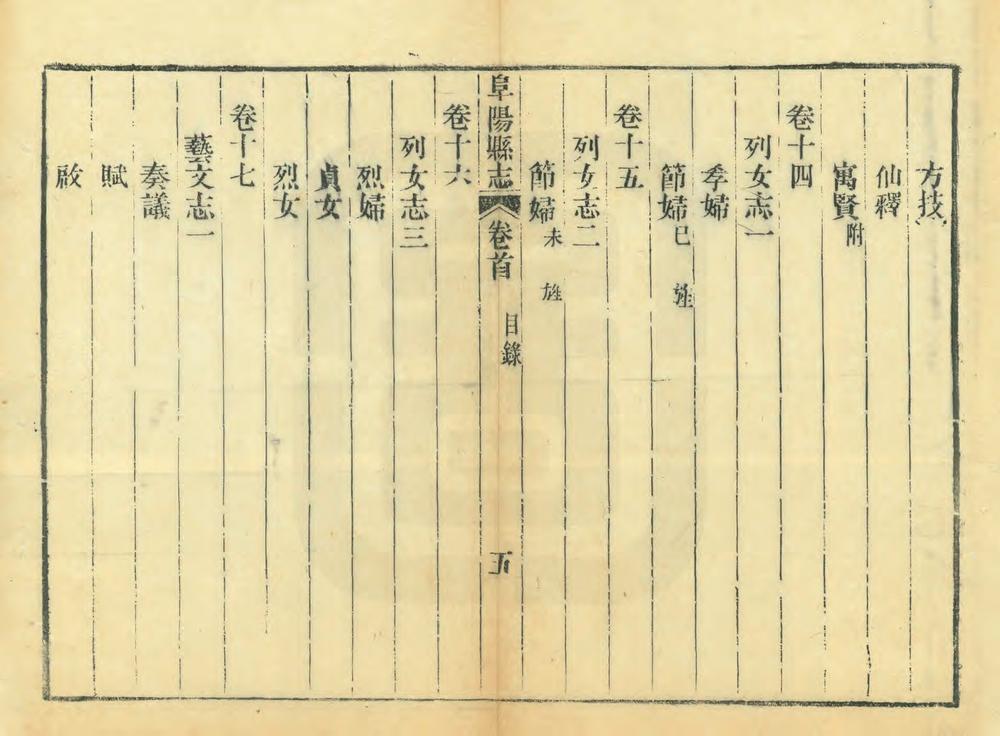 方技
仙釋
寓賢附
卷十四
列女志一
孝婦
節婦已旌
卷十五
列女志二
節婦未旌
阜陽縣志 卷首 目錄 五
卷十六
列女志三
烈婦
貞女
烈女
卷十七
藝文志一
奏議
賦
啟